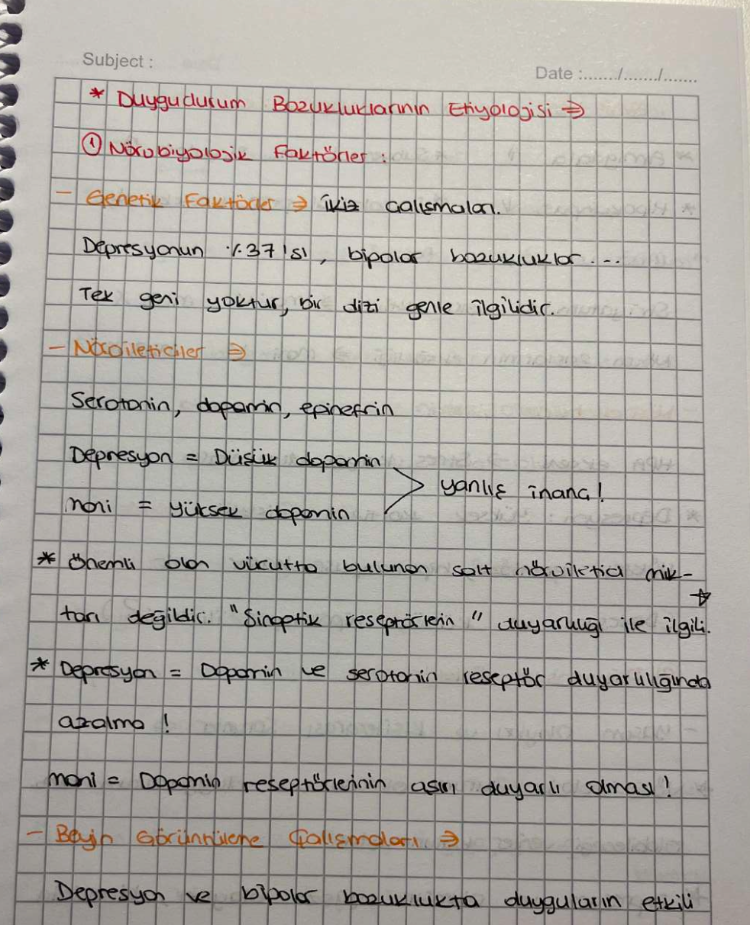 Subject :
Date :....../......./.......
* Duygudurum Bozukluklarının Etiyolojisi ⇒
① Nörobiyolojik Faktörler :
- Genetik Faktörler ⇒ ikiz çalışmaları.
Depresyonun %37'si, bipolar bozukluklar...
Tek geni yoktur, bir dizi genle ilgilidir.
- Nöroileticiler ⇒
Serotonin, dopamin, epinefrin
Depresyon = Düşük dopamin
mani = yüksek dopamin
> yanlış inanç!
* Önemli olan vücutta bulunan salt nöroiletici mik-
tarı değildir. "Sinaptik reseptörlerin" duyarlılığı ile ilgili. →
* Depresyon = Dopamin ve serotonin reseptör duyarlılığında
azalma !
mani = Dopamin reseptörlerinin aşırı duyarlı olması !
- Beyin Görüntüleme Çalışmaları ⇒
Depresyon ve bipolar bozuklukta duyguların etkili